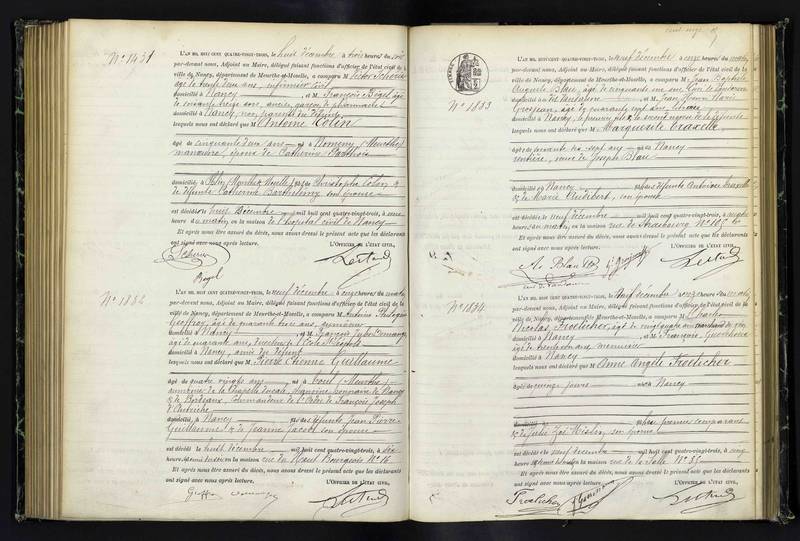 N° 1431
L'AN MIL HUIT CENT QUATRE-VINGT-TROIS, le huit décembre à trois heures du soir
par-devant nous, Adjoint au Maire, délégué faisant fonctions d'officier de l'état civil de la
ville de Nancy, département de Meurthe-et-Moselle, a comparu M. Victor
âgé de trente deux ans, infirmier civil
domicilié à Nancy et M. François Bogel âgé
de ans, ancien garçon de pharmacie
domicilié à Nancy, non parents du défunt
lesquels nous ont déclaré que M. Antoine Colin
âgé de cinquante deux ans né à Nomeny (Meurthe)
manœuvre, époux de Catherine
domicilié à (Meurthe & Moselle) fils de Christophe Colin &
de défunte Catherine Barthelemy son épouse
est décédé le huit décembre mil huit cent quatre-vingt-trois, à
heures du matin, en la maison de l'hôpital civil de Nancy
Et après nous être assuré du décès, nous avons dressé le présent acte que les déclarants
ont signé avec nous après lecture. L'OFFICIER DE L'ÉTAT CIVIL,
Bogel
N° 1882
L'AN MIL HUIT CENT QUATRE-VINGT-TROIS, le neuf décembre à onze heures du matin
par-devant nous, Adjoint au Maire, délégué faisant fonctions d'officier de l'état civil de la
ville de Nancy, département de Meurthe-et-Moselle, a comparu M. Antoine
Geoffroy, âgé de quarante trois ans,
domicilié à Nancy et M. François
âgé de quarante ans, directeur de l'École St
domicilié à Nancy, amis du défunt
lesquels nous ont déclaré que M. Pierre Etienne Guillaume
âgé de quatre vingts ans né à Toul (Meurthe)
aumônier de la Chapelle ducale, chanoine honoraire de Nancy
& de Bordeaux, Commandeur de l'Ordre de François Joseph
d'Autriche
domicilié à Nancy fils de défunts Jean Pierre
Guillaume & de Jeanne Jacob son épouse
est décédé le huit décembre mil huit cent quatre-vingt-trois, à dix
heures en la maison rue du Haut Bourgeois N° 16
Et après nous être assuré du décès, nous avons dressé le présent acte que les déclarants
ont signé avec nous après lecture. L'OFFICIER DE L'ÉTAT CIVIL,
N° 1883
L'AN MIL HUIT CENT QUATRE-VINGT-TROIS, le neuf décembre à onze heures du matin
par-devant nous, Adjoint au Maire, délégué faisant fonctions d'officier de l'état civil de la
ville de Nancy, département de Meurthe-et-Moselle, a comparu M. Jean Baptiste
Auguste Blau, âgé de cinquante un ans
domicilié à et M. Jean
Grosjean, âgé de quarante sept ans, libraire
domicilié à Nancy, le premier fils & le second de la défunte
lesquels nous ont déclaré que M. Marguerite Traxelle
âgée de soixante dix sept ans née à Nancy
rentière, veuve de Joseph Blau
domiciliée à Nancy fille de défunts Ambroise Traxelle
& de Marie son épouse
est décédée le neuf décembre mil huit cent quatre-vingt-trois, à
heures du matin, en la maison rue de Strasbourg N° 165
Et après nous être assuré du décès, nous avons dressé le présent acte que les déclarants
ont signé avec nous après lecture. L'OFFICIER DE L'ÉTAT CIVIL,
A. Blau
N° 1884
L'AN MIL HUIT CENT QUATRE-VINGT-TROIS, le neuf décembre à onze heures du matin
par-devant nous, Adjoint au Maire, délégué faisant fonctions d'officier de l'état civil de la
ville de Nancy, département de Meurthe-et-Moselle, a comparu M. Charles
Nicolas Froelicher, âgé de cinquante ans
domicilié à Nancy et M. François
âgé de trente ans, menuisier
domicilié à Nancy
lesquels nous ont déclaré que M. Anne Angèle Froelicher
âgée de quinze jours née à Nancy
domiciliée à fille du premier comparant
& de Julie Zoé son épouse
est décédée le neuf décembre mil huit cent quatre-vingt-trois, à cinq
heures du matin en la maison rue de la Salle N° 35
Et après nous être assuré du décès, nous avons dressé le présent acte que les déclarants
ont signé avec nous après lecture. L'OFFICIER DE L'ÉTAT CIVIL,
Froelicher